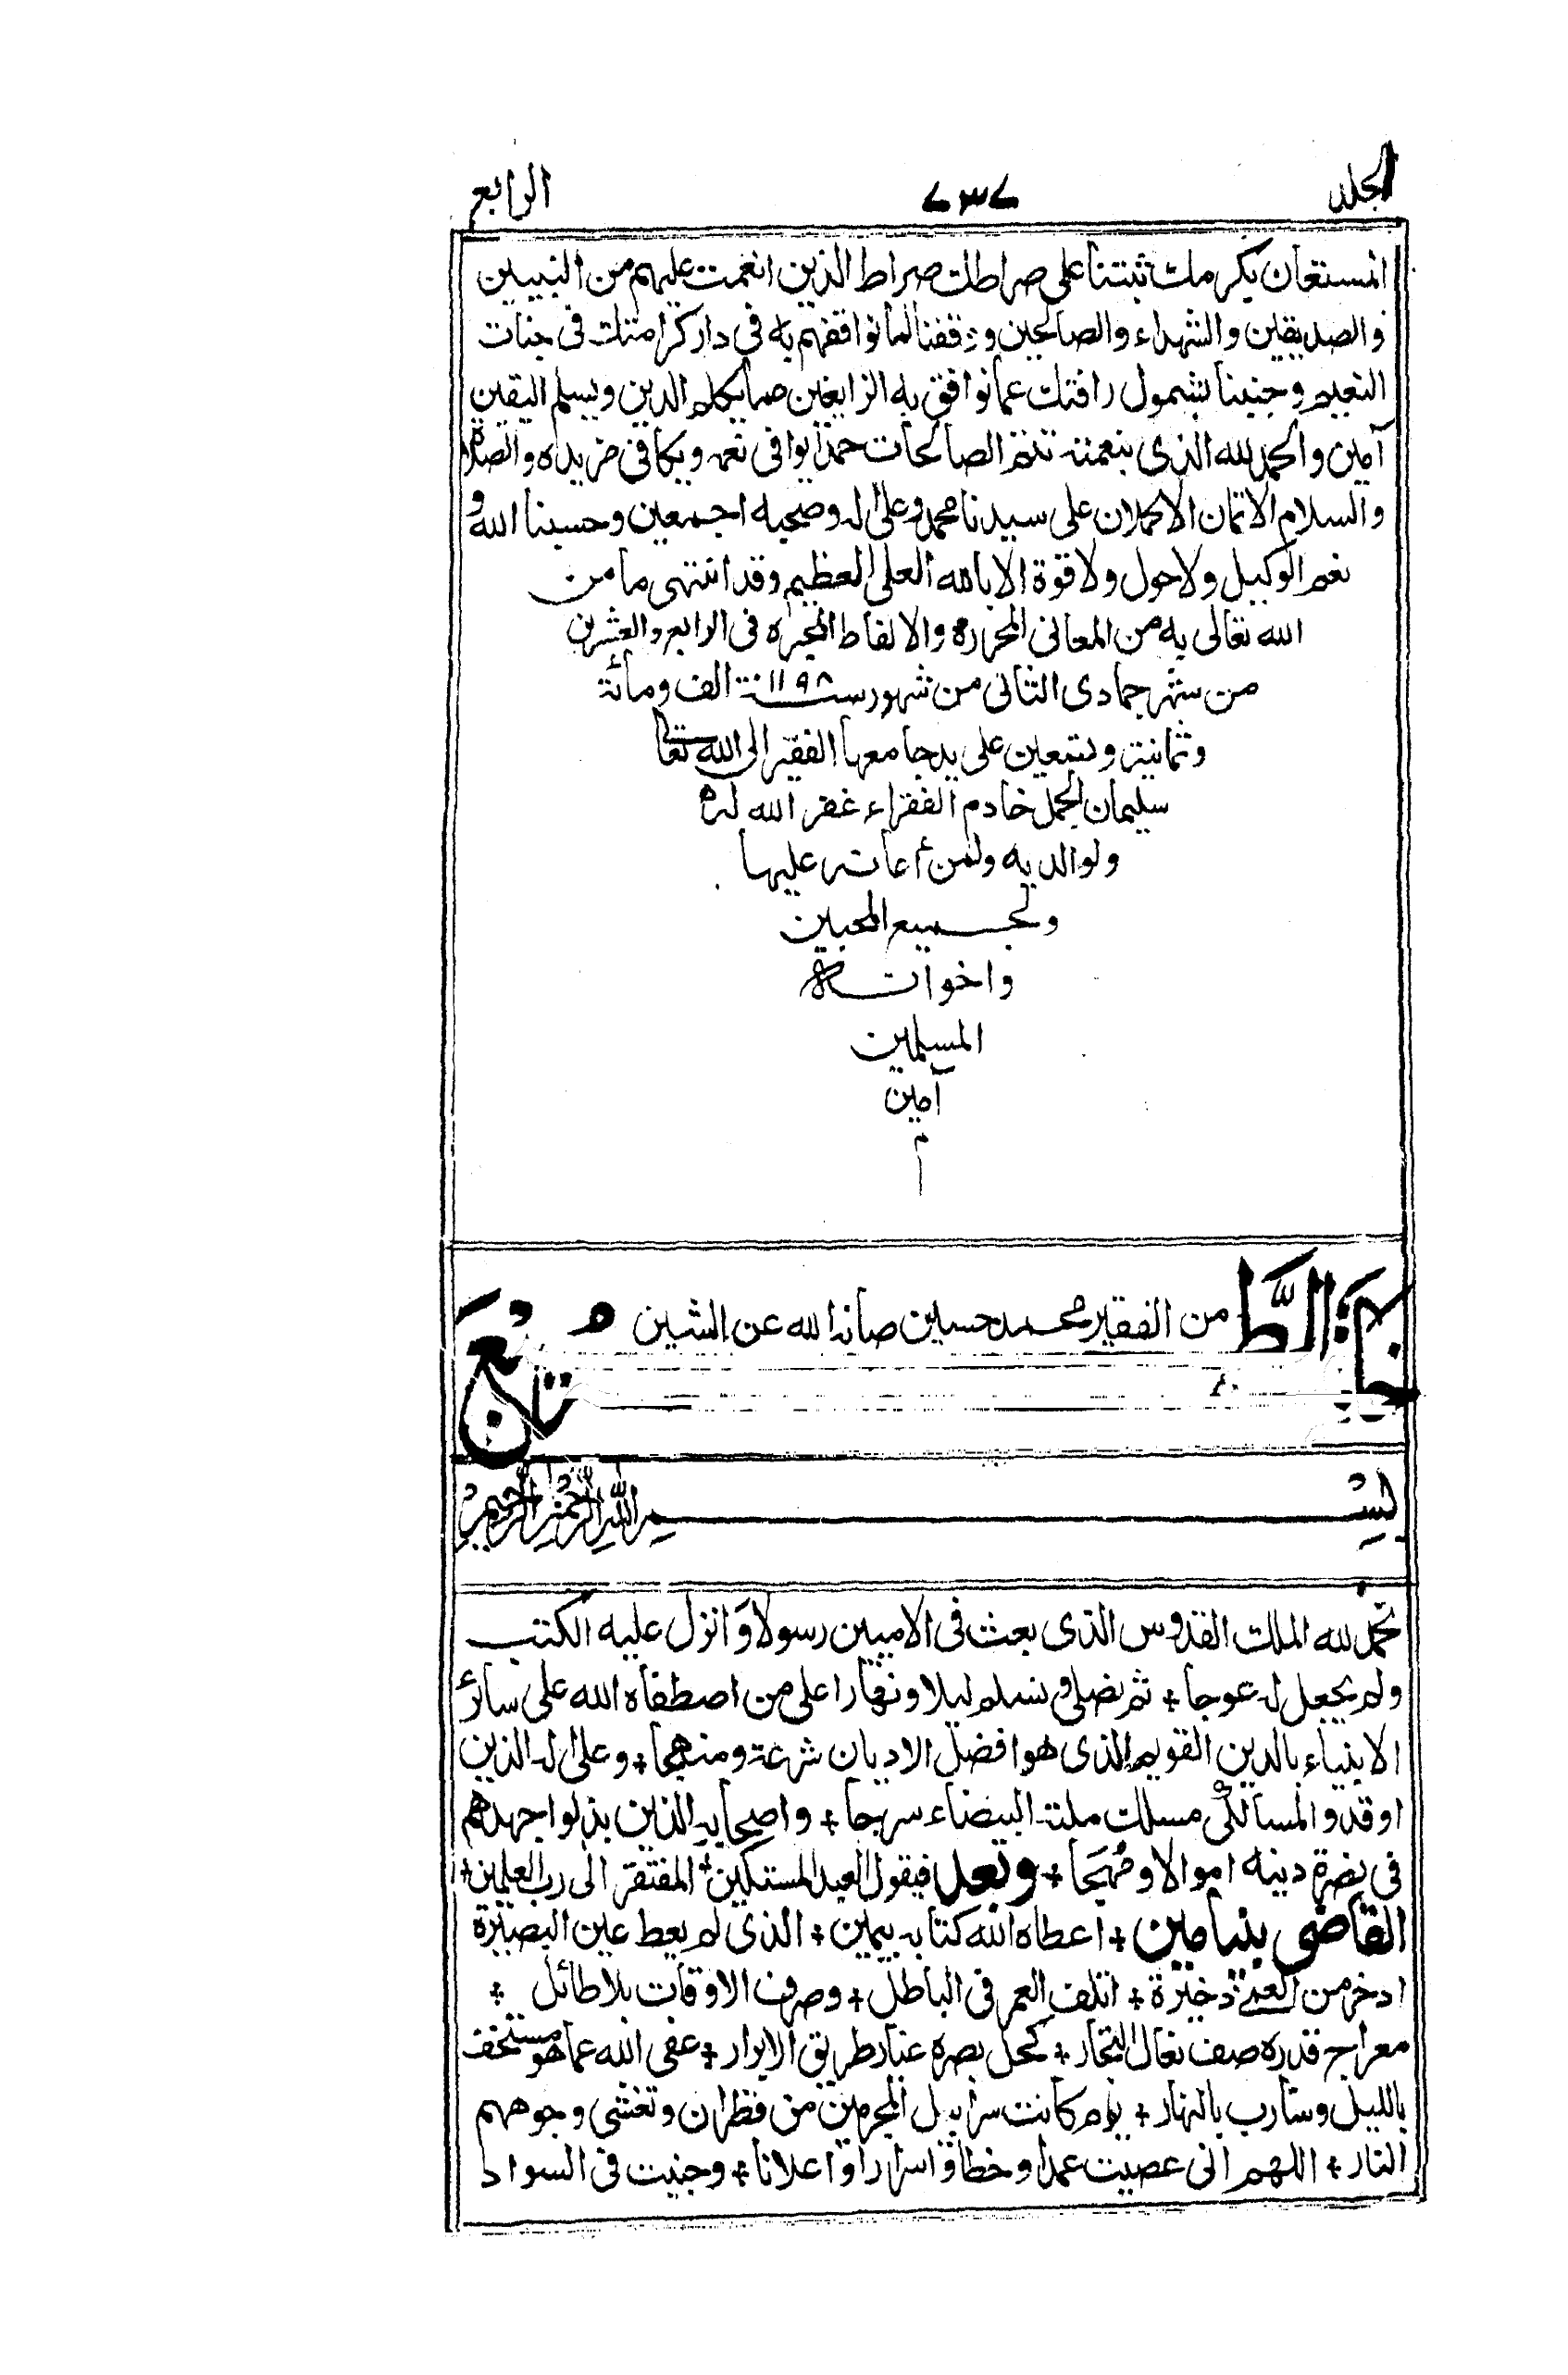 الجلد ٧٣٧ الرابع
المستعان بكرمك ثبتنا على صراطك صراط الذين انعمت عليهم من النبيين
والصديقين والشهداء والصالحين ووقفنا لما نوافقهم به في دار كرامتك في جنات
النعيم وجنبنا بشمول رافتك عما نوافق به الزايغين مما يكلم الدين ويسلم اليقين
آمين والحمد لله الذي بنعمته تتم الصالحات حمدا يوافى نعمه ويكافى مزيده والصلاة
والسلام الاتمان الاكملان على سيدنا محمد وعلى اله وصحبه اجمعين وحسبنا الله و
نعم الوكيل ولا حول ولا قوة الا بالله العلى العظيم وقد انتهى ما من
الله تعالى به من المعانى المحررة والالفاظ المجره فى الرابع والعشرين
من شهر جمادى الثانى من شهور سنة ١١٩٨ الف ومائة
وثمانية وتسعين على يد جامعها الفقير الى الله تعالى
سليمان الجمل خادم الفقراء غفر الله له
ولوالديه ولمن أعانه عليها
ولجميع المحبين
واخوانه
المسلمين
آمين
م
خاتمة الطبع من الفقير محمد حسين صانه الله عن الشين
بسم الله الرحمن الرحيم
نحمد لله الملك القدوس الذى بعث فى الاميين رسولا وانزل عليه الكتب
ولم يجعل له عوجا + ثم نصلى و نسلم ليلا ونهارا على من اصطفاه الله على سائر
الانبياء بالدين القويم الذى هو افضل الاديان شرعة ومنهجا + وعلى اله الذين
اوقدوا لسالكى مسلك ملته البيضاء سرجا + واصحابه الذين بذلوا جهدهم
فى نصرة دينه اموالا ومُهَجا + وبعد فيقول العبد المستكين + المفتقر الى رب العلمين +
القاضى بنيامين + اعطاه الله كتابه بيمين + الذى لم يعط عين البصيرة
ادخر من ذخيرة + اتلف العمر فى الباطل + وصرف الاوقات بلا طائل +
معراج قدره صف نعال التجار + كحل بصره غبار طريق الابرار + عفى الله عما هو مستخف
بالليل وسارب بالنهار + يوم كانت سرابيل المجرمين من قطران وتغشى وجوههم
النار + اللهم انى عصيت عمدا وخطأ واسرارا واعلانا + وجنيت فى السواد